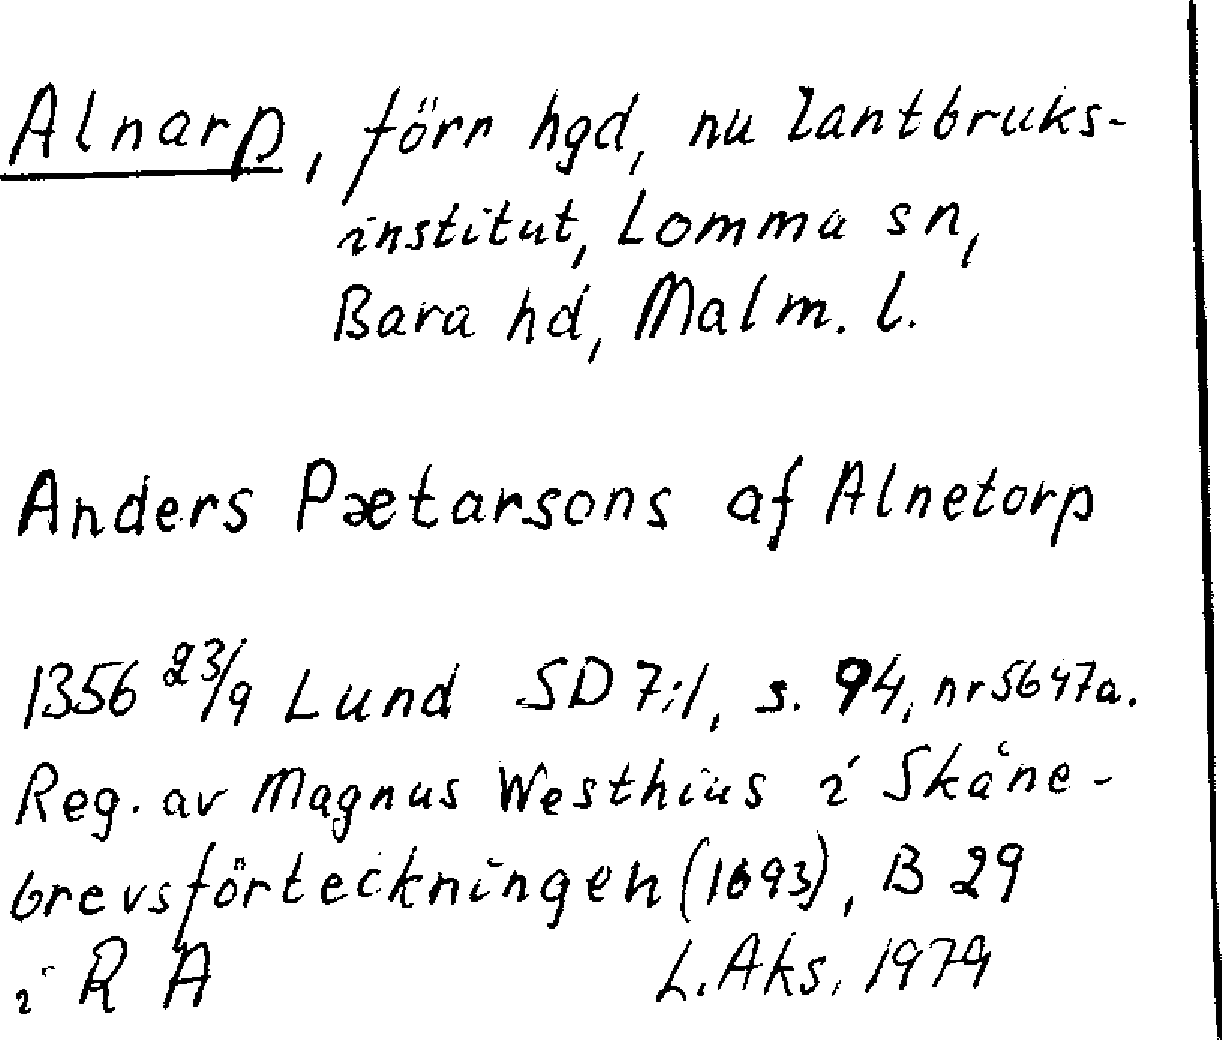 Alnarp, förr hgd, nu lantbruks-
institut, Lomma sn,
Bara hd, Malm. l.
Anders Pætarsons af Alnetorp
1356 23/9 Lund SD 7:1, s. 94, nr 5647a.
Reg. av Magnus Westhius i Skåne-
brevsförteckningen (1693), B 29
i R A
L. Aks. 1979